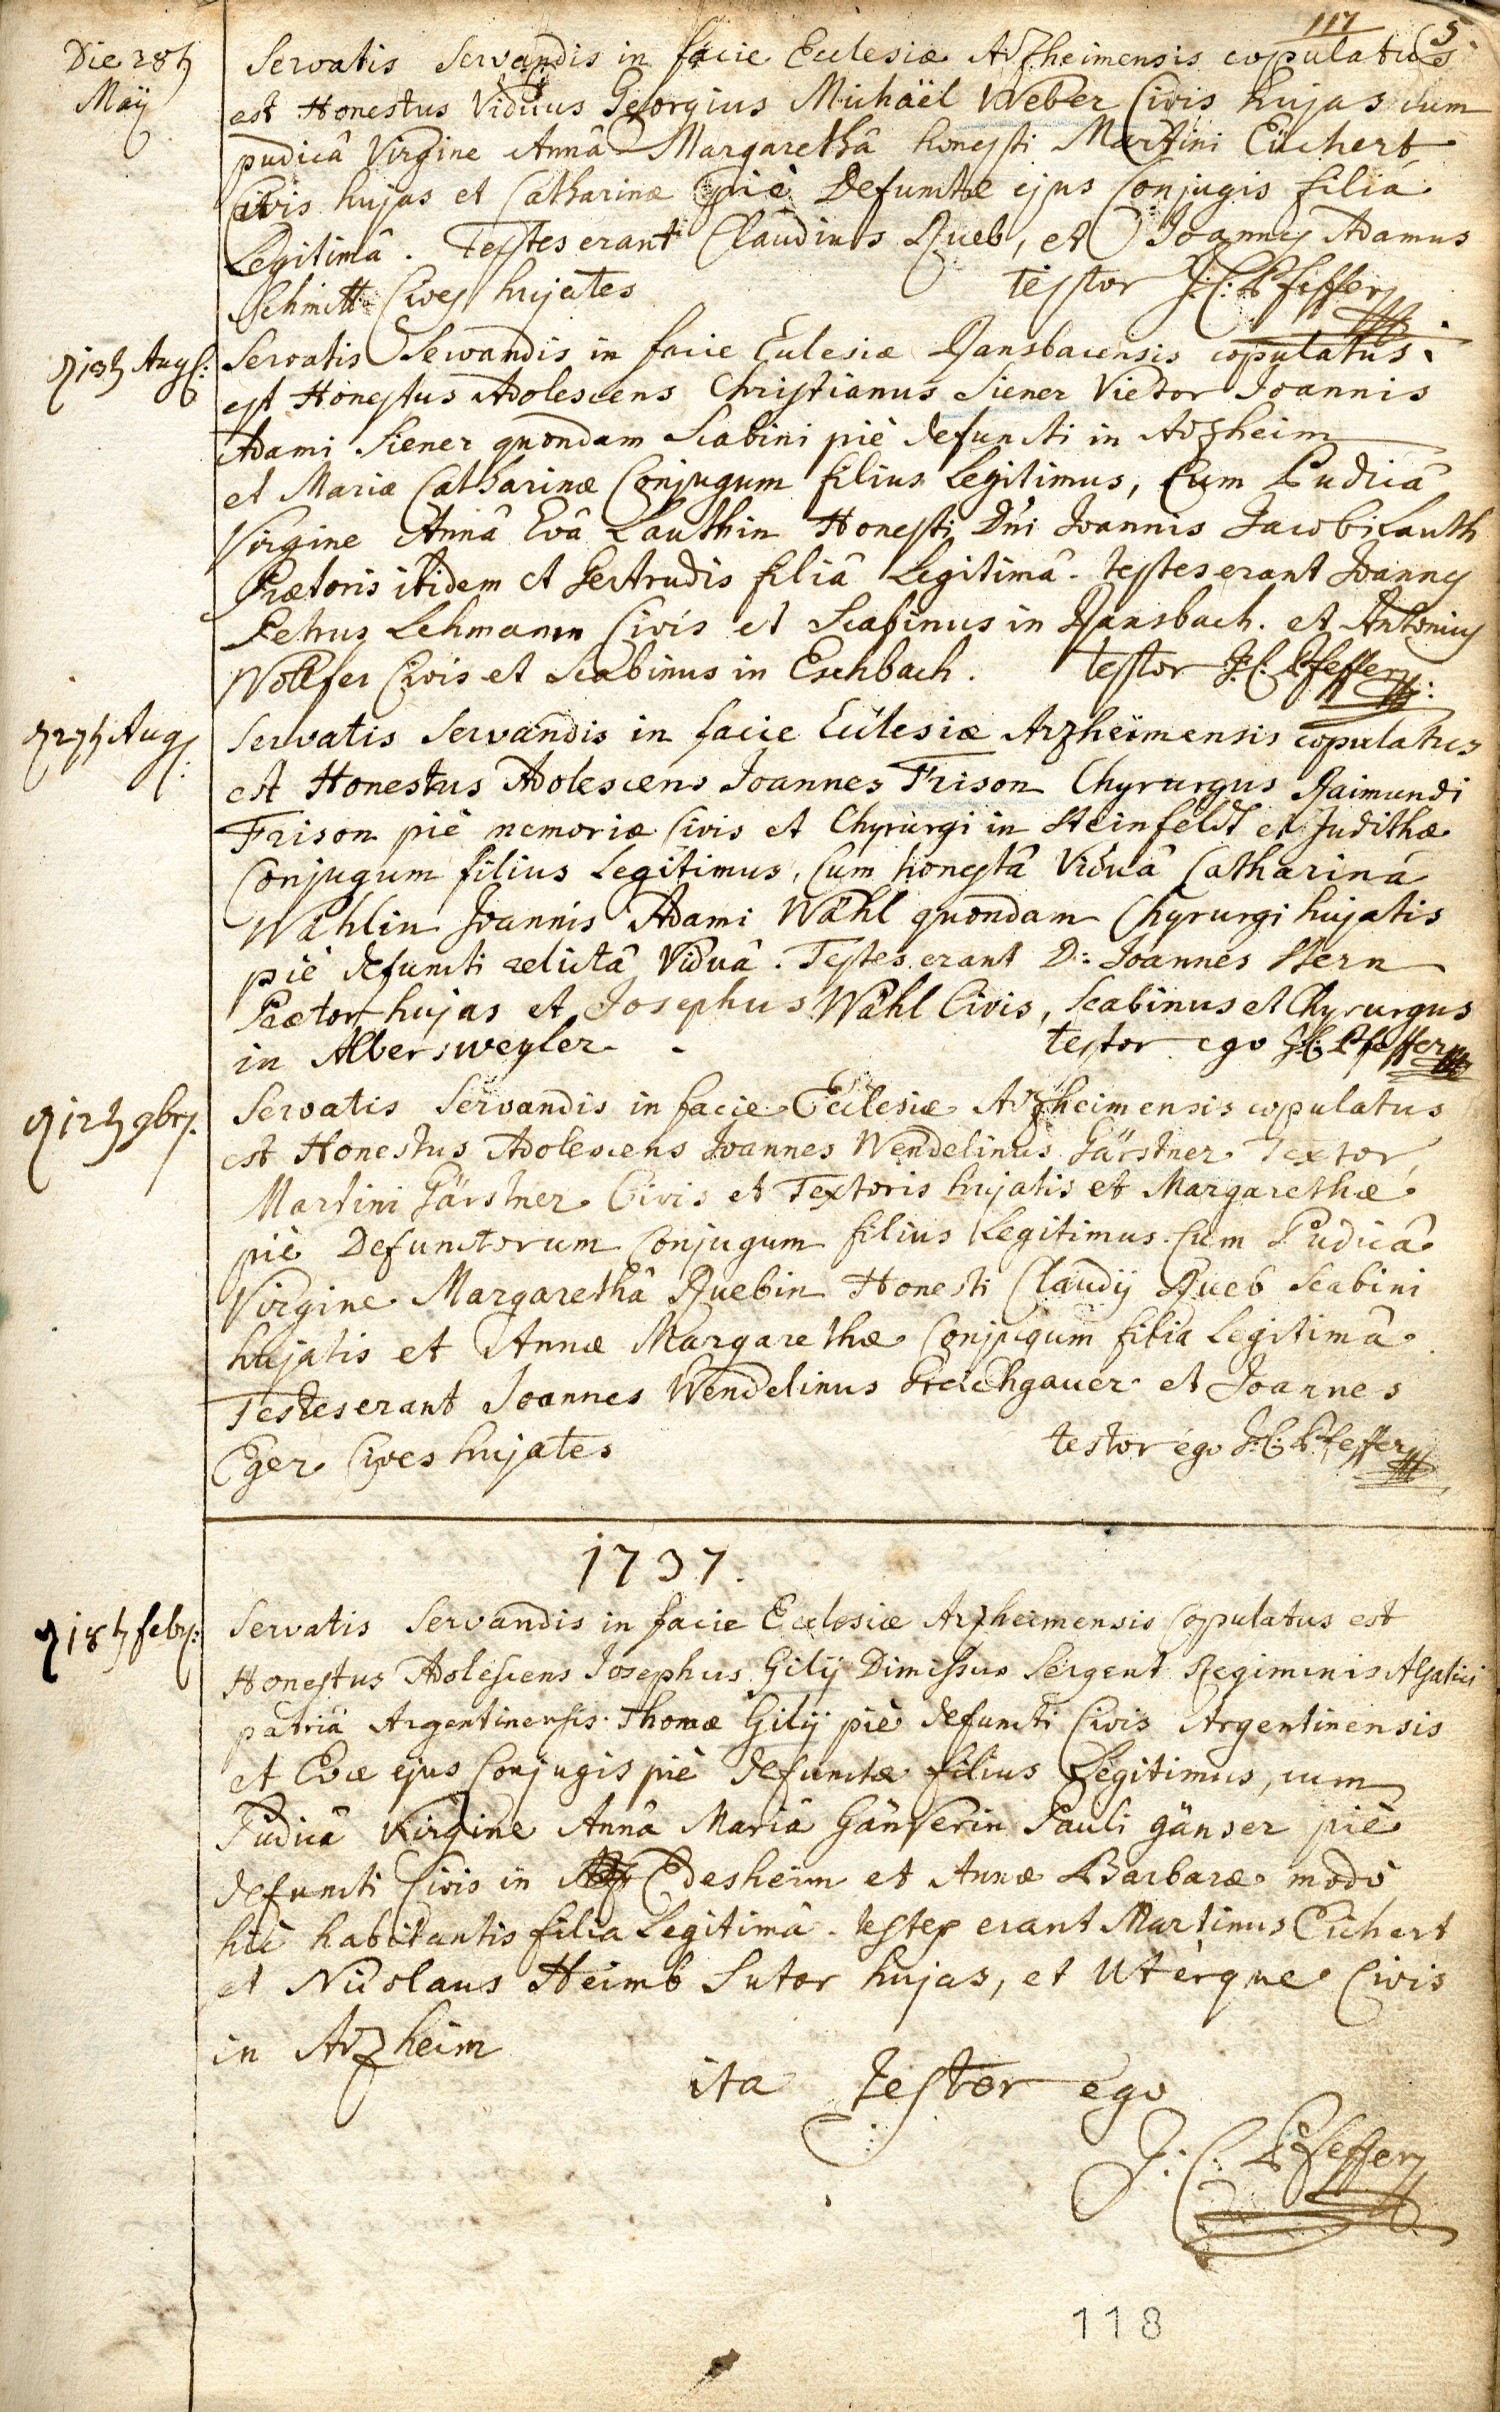 117 5
Die 28ħ
Maÿ
Servatis Servandis in facie Ecclesiæ Arzheimensis copulatus
est Honestus Viduus Georgius Michäel Weber Civis hujas cum
pudicâ Virgine Annâ Margarethâ honesti Martini Eichert
Civis hujas et Catharinæ piè Defunctæ ejus Conjugis filiâ
Legitimâ. Testes erant Claudius Rueb, et Joannes Adamus
Schmitt Cives hujates testor J: C: Pfeffer
13ħ Augs:
Servatis Servandis in facie Eclesiæ Ransbacensis copulatus
est Honestus Adolescens Christianus Siener Vietor Joannis
Adami Siener quondam Scabini piè defuncti in Arzheim
et Mariæ Catharinæ Conjugum filius Legitimus, Cum Pudicâ
Virgine Annâ Evâ Lauthin Honesti Dni Joannis Jacobi Lauth
Prætoris ibidem et Gertrudis filiâ Legitimâ. testes erant Joannes
Petrus Lehmann Civis et Scabinus in Ransbach. et Antonius
Wolfer Civis et Scabinus in Eschbach. testor J: C: Pfeffer
27ħ Augs:
Servatis Servandis in facie Eclesiæ Arzheimensis copulatus
est Honestus Adolescens Joannes Frison Chyrurgus Raimundi
Frison piè memoriæ Civis et Chyrurgi in Steinfeldt et Judithæ
Conjugum filius Legitimus, Cum honestâ Viduâ Catharinâ
Wählin Joannis Adami Wähl quondam Chyrurgi hujatis
piè defuncti relictâ Viduâ. Testes erant D: Joannes Stern
Prætor hujas et Josephus Wähl Civis, Scabinus et Chyrurgus
in Albersweyler. testor ego J: C: Pfeffer
12ħ 9bris.
Servatis Servandis in facie Ecclesiæ Arzheimensis copulatus
est Honestus Adolescens Joannes Wendelinus Gärstner Textor,
Martini Gärstner Civis et Textoris hujatis et Margarethæ
piè Defunctorum Conjugum filius Legitimus. Cum Pudicâ
Virgine Margarethâ Ruebin Honesti Claudij Rueb Scabini
hujatis et Annæ Margarethæ Conjugum filia Legitimâ.
Testes erant Joannes Wendelinus Kreichgauer et Joannes
Eger Cives hujates testor ego J: C: Pfeffer
1737.
18ħ febr:
Servatis Servandis in facie Ecclesiæ Arzheimensis Copulatus est
Honestus Adolescens Josephus Gilij Dimissus Sergent Regiminis Alsatici
patriâ Argentinensis. Thomæ Gilij piè defuncti Civis Argentinensis
et Evæ ejus Conjugis piè defunctæ filius Legitimus, cum
Pudicâ Virgine Annâ Mariâ Gänserin Pauli gänser piè
defuncti Civis in Edesheim et Annæ Barbaræ modò
hìc habitantis filia Legitimâ. testes erant Martinus Eichert
et Nicolaus Heimb Sutor hujas, et Utèrque Civis
in Arzheim
ita testor ego
J: C: Pfeffer
118